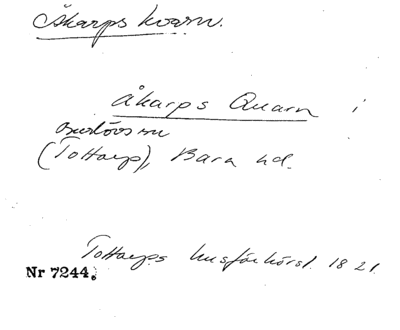 Åkarps kvarn.
Åkarps Quarn i
Burlövs sn
(Tottarp), Bara hd.
Tottarps husförhörsl. 1821.
Nr 7244.